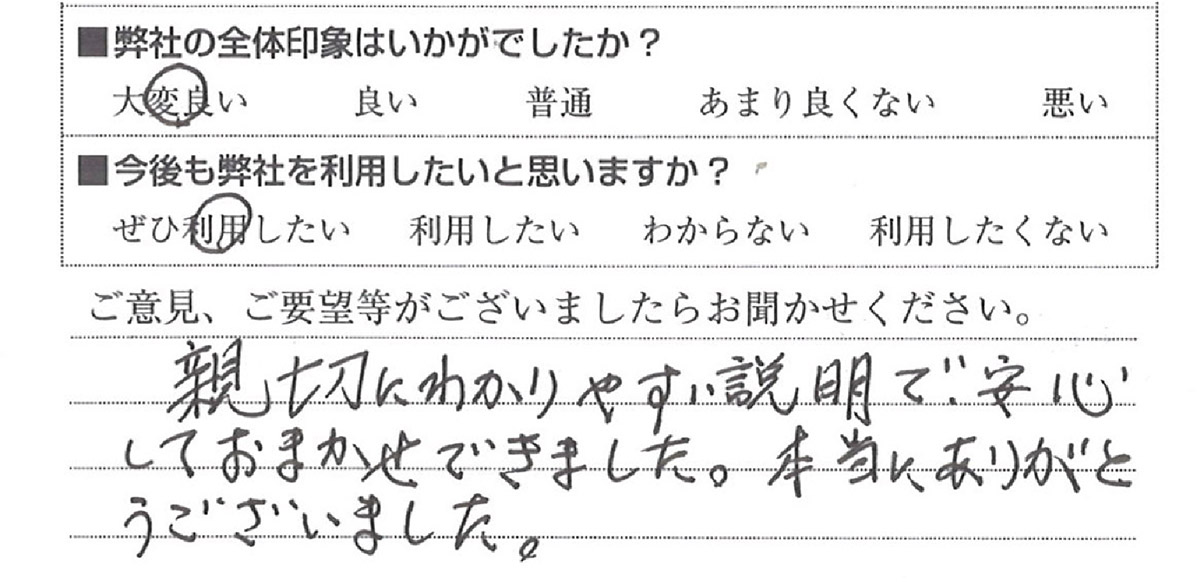 ■弊社の全体印象はいかがでしたか？
大変良い 良い 普通 あまり良くない 悪い
■今後も弊社を利用したいと思いますか？
ぜひ利用したい 利用したい わからない 利用したくない
ご意見、ご要望等がございましたらお聞かせください。
親切にわかりやすい説明で安心
しておまかせできました。本当にありがと
うございました。